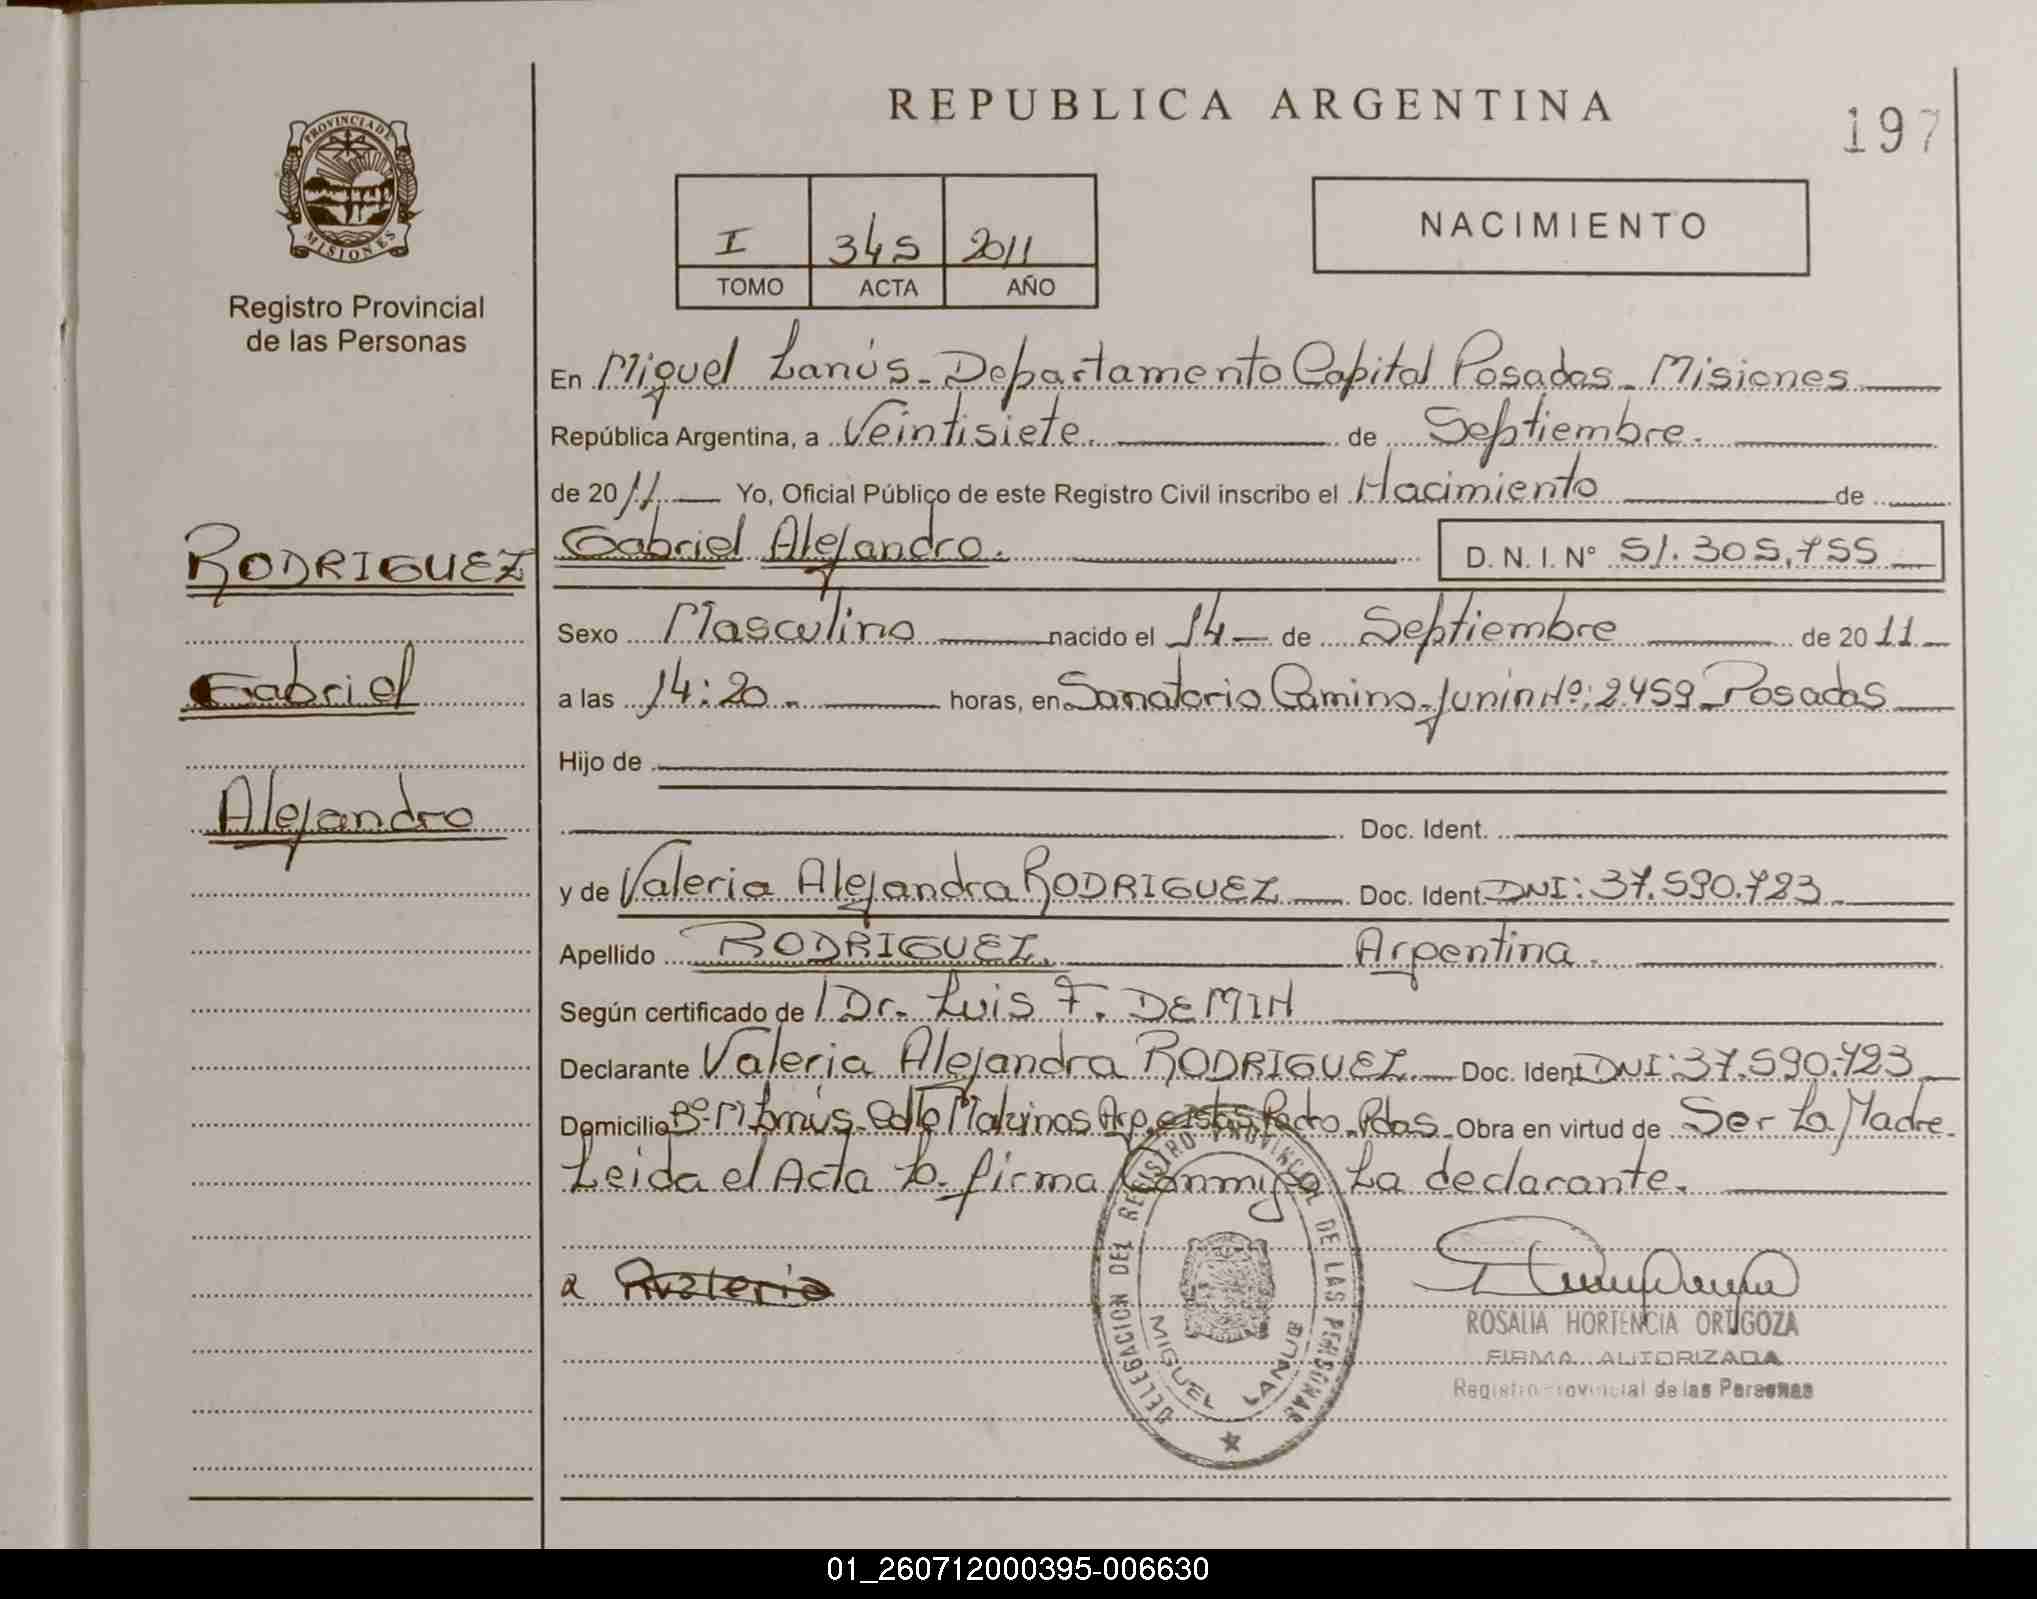 REPUBLICA ARGENTINA
197
PROVINCIA DE MISIONES
Registro Provincial
de las Personas
I 345 2011
TOMO ACTA AÑO
NACIMIENTO
En Miguel Lanús - Departamento Capital Posadas - Misiones
República Argentina, a Veintisiete. de Septiembre.
de 2011 Yo, Oficial Público de este Registro Civil inscribo el Nacimiento de
RODRIGUEZ
Gabriel
Alejandro
Gabriel Alejandro. D. N. I. Nº 51.305.755
Sexo Masculino nacido el 14 de Septiembre de 2011
a las 14:20 horas, en Sanatorio Camino - Junín Nº: 2.459 - Posadas
Hijo de
Doc. Ident.
y de Valeria Alejandra RODRIGUEZ Doc. Ident. DNI: 37.590.723
Apellido RODRIGUEZ. Argentina.
Según certificado de Dr. Luis F. DEMIN
Declarante Valeria Alejandra RODRIGUEZ Doc. Ident DNI: 37.590.723
Domicilio Bº M Lanús Malvinas Arg. Pdas. Obra en virtud de Ser La Madre.
Leida el Acta La firma Conmigo La declarante.
DELEGACION DEL REGISTRO PROVINCIAL DE LAS PERSONAS
MIGUEL LANUS
ROSALIA HORTENCIA ORTIGOZA
FIRMA AUTORIZADA
Registro Provincial de las Personas
01_260712000395-006630